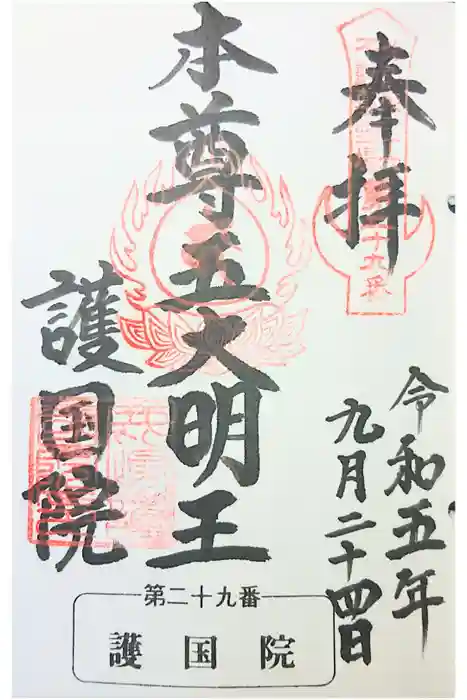 奉拝
令和五年
九月二十四日
本尊五大明王
護国院
第二十九番
護国院